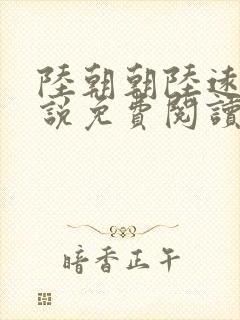 陸朝朝陸遠
說免費閱讀
暗香正午